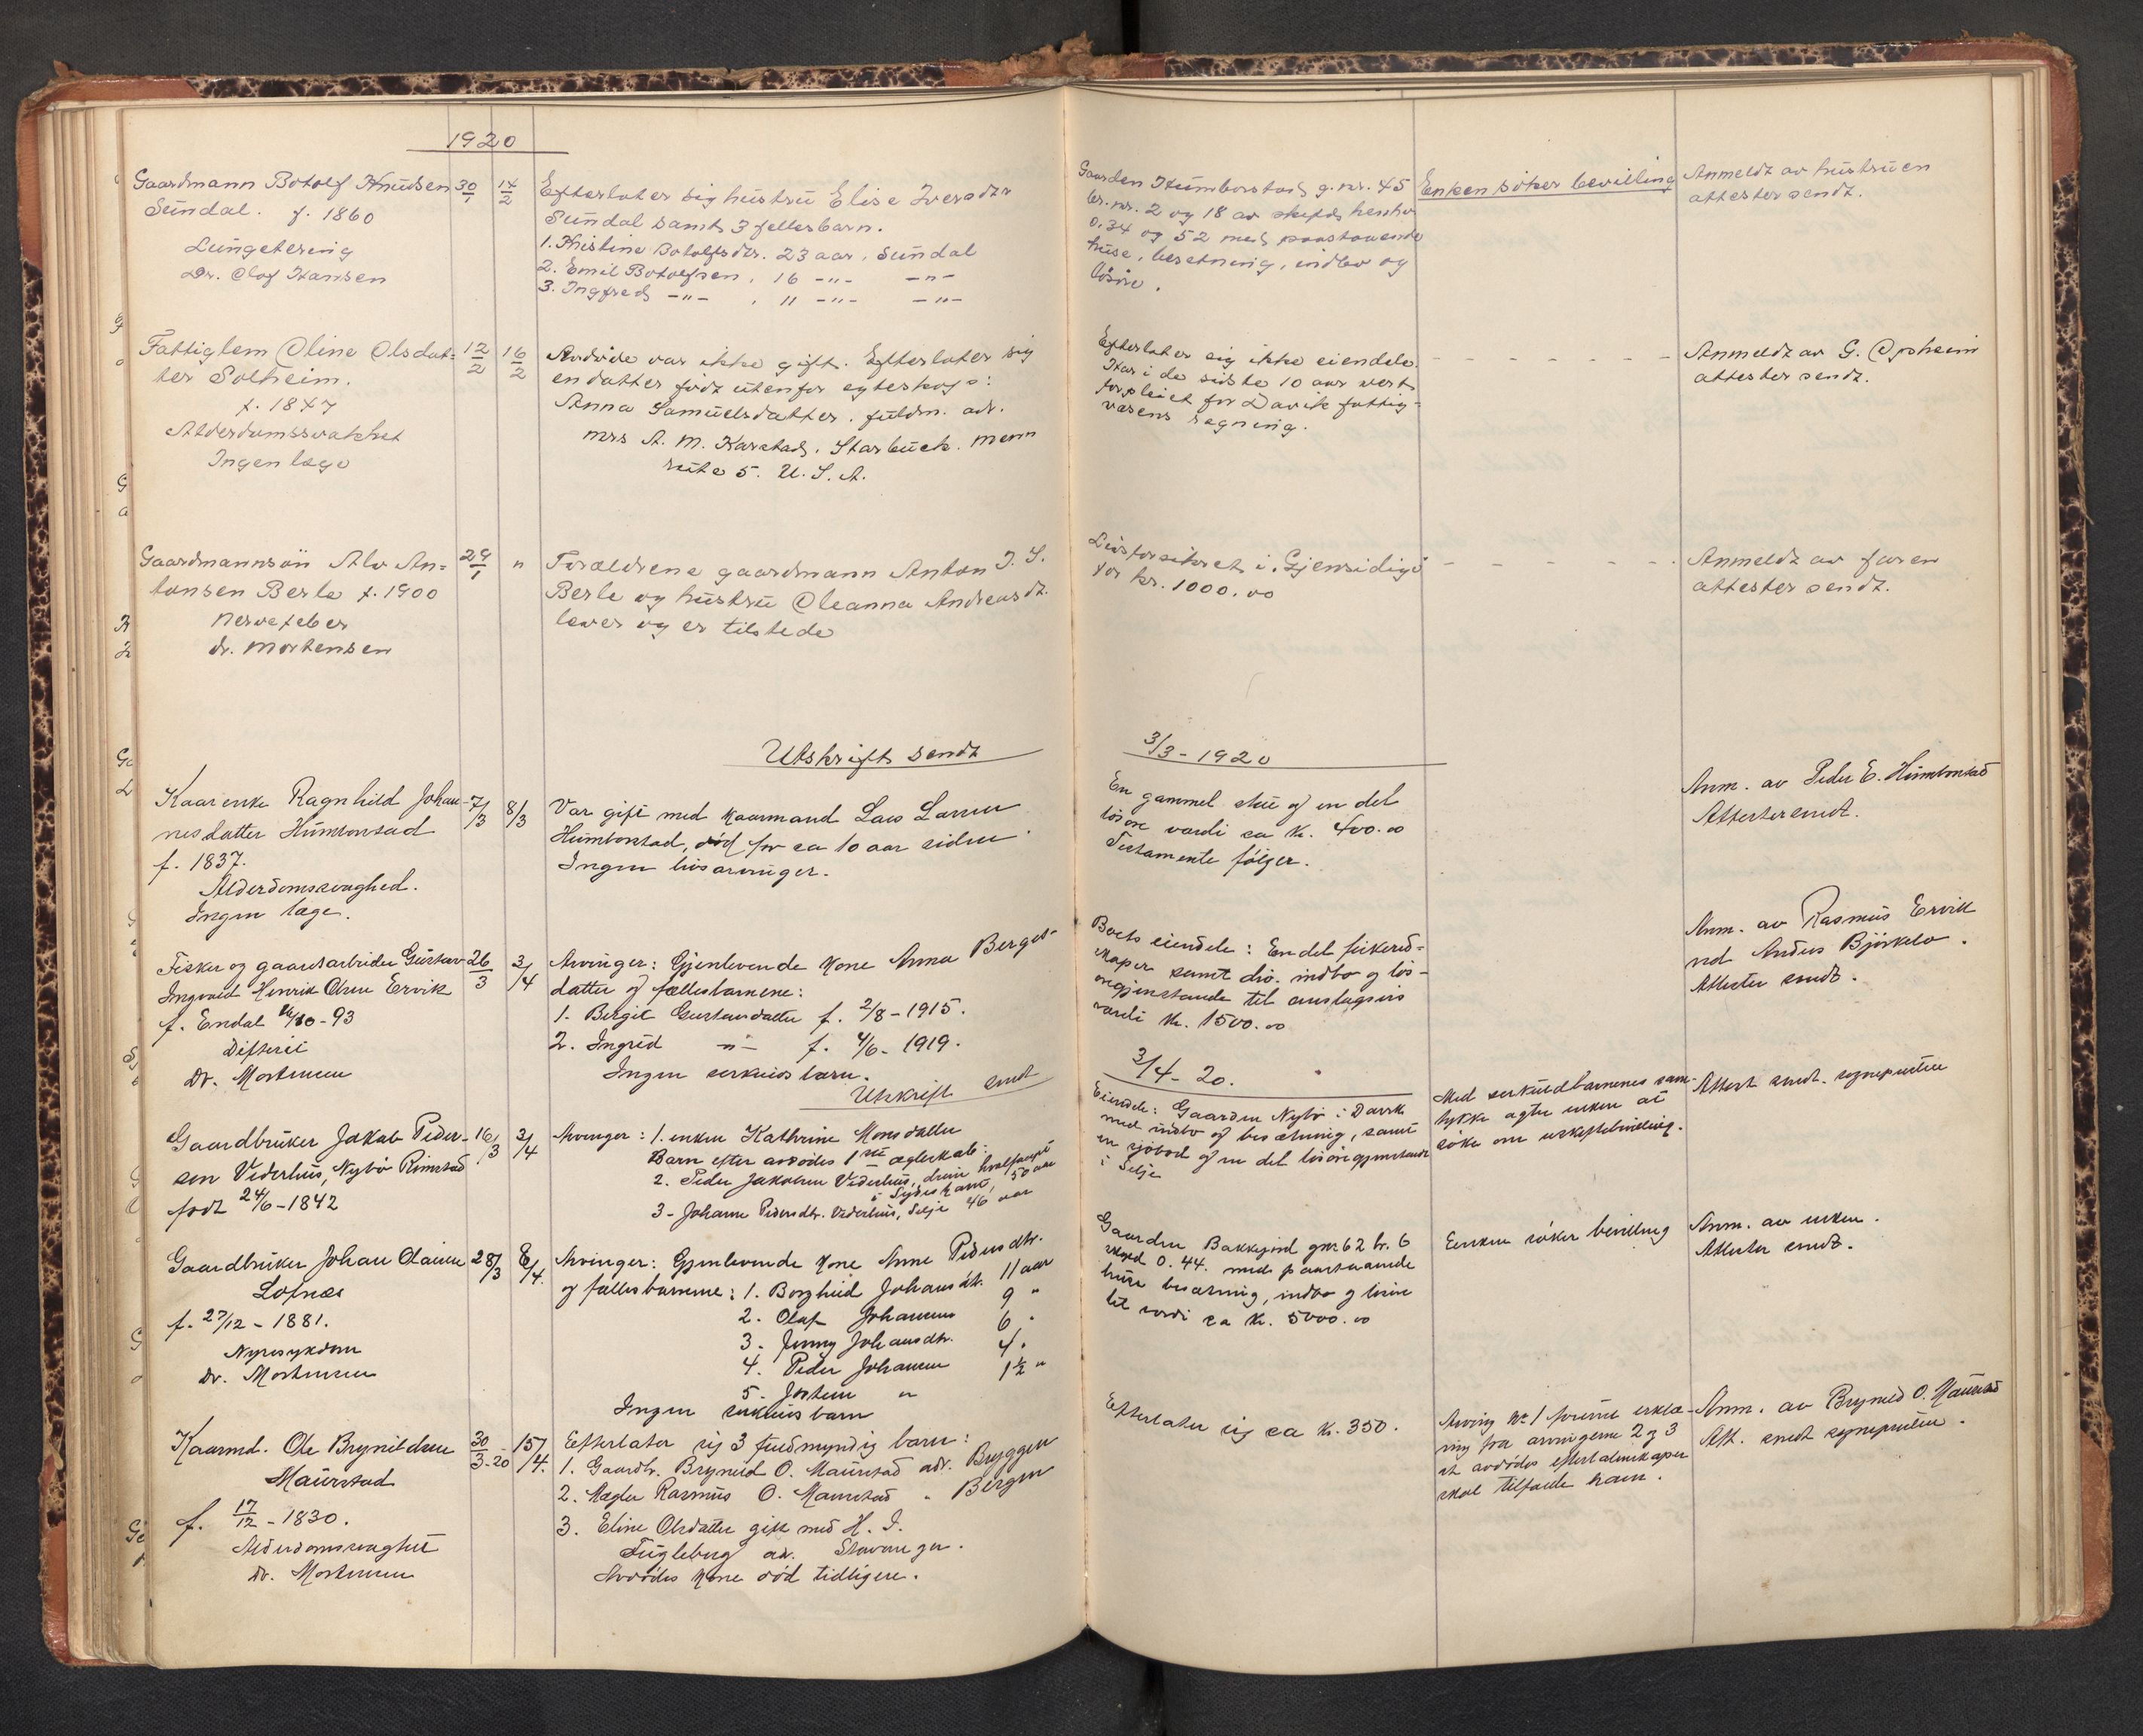 1920
Gaardmann Botolf Knudsen 30/1 14/2
Sundal. f. 1860
Lungetering
Dr. Olof Hansen
Efterlater sig hustru Elise Iversdtr
Sundal samt 3 fellesbarn.
1. Kristine Botolfsdtr. 23 aar, Sundal
2. Emil Botolfsen, 16 -"- -"-
3. Ingfred -"- , 11 -"- -"-
Gaarden Humborstad g.nr. 45
br.nr. 2 og 18 av skyld henhv
0.34 og 52 med paastaaende
huse, besetning, indbo og
løsøre.
Enken søker bevilling
Anmeldt av hustruen
attester sendt.
Fattiglem Oline Olsdat= 12/2 16/2
ter Solheim.
f. 1847
Alderdomssvakhet
Ingen læge
Avdøde var ikke gift. Efterlater sig
en datter født utenfor egteskap:
Anna Samuelsdatter. fuldm. adr.
mrs A. M. Karstad, Starbuck. Menn
rute 5. U. S. A.
Efterlater sig ikke eiendele.
Har i de sidste 10 aar vert
forpleiet for Davik fattig-
væsens regning.
Anmeldt av G. Opheim
attester sendt.
Gaardmannsøn Alv An= 29/1 "
tonsen Berle f. 1900
Nervefeber
dr. Mortensen
Forældrene gaardmann Anton J. S.
Berle og hustru Oleanna Andreasdt.
lever og er tilstede
Livsforsikret i Gjensidige
for kr. 1000.00
Anmeldt av faren
attester sendt.
Utskrift sendt 3/3 - 1920
Kaarenke Ragnhild Johan- 7/3 8/3
nesdatter Humborstad
f. 1837.
Alderdomssvaghed.
Ingen læge.
Var gift med Kaarmand Lars Larsen
Humborstad, død for ca 10 aar siden
Ingen livsarvinger.
En gammel stue og en del
løsøre værdi ca Kr. 400.00
Testamente følger.
Anm. av Peder E. Humborstad
Attester sendt.
Fisker og gaardsarbeider Gustav 26/3 3/4
Ingvald Henrik Olsen Ervik
f. Endal /10 - 93
Difteri
Dr. Mortensen
Arvinger: Gjenlevende Kone Anna Berget-
datter og fællesbarnene:
1. Birgit Gustavdatter f. 2/8 - 1915.
2. Ingrid -"- f. 4/6 - 1919.
Ingen særkuldsbarn.
Boets eiendele: En del fiskered-
skaper samt div. indbo og løs-
øregjenstande til anslagsvis
værdi Kr. 1500.00
Anm. av Rasmus Ervik
ved Anders Bjørkelo.
Attester sendt.
Utskrift sendt 3/4 - 20.
Gaardbruker Jakob Peder- 16/3 3/4
sen Vederhus, Nybø Rimstad
født 24/6 - 1842
Arvinger: 1. enken Kathrine Monsdatter
Barn efter avdødes 1ste ægteskab:
2. Peder Jakobsen Vederhus,
50 aar
3 - Johanne Pedersdtr. Vederhus, Selje 46 aar
Eiendele: Gaarden Nybø i Davik
med indbo og besætning, samt
en sjøbod og en del løsøregjenstande
i Selje
Med særkuldbarnenes sam-
tykke agter enken at
søke om uskiftebevilling.
Attest sendt sognepresten
Gaardbruker Johan Olaisen 28/3 8/4.
Lofnæs
f. 27/12 - 1881.
Nyresykdom
Dr. Mortensen
Arvinger: Gjenlevende Kone Anne Pedersdtr.
og fællesbarnene: 1. Borghild Johansdt. 11 aar
2. Olaf Johansen 9 "
3. Jenny Johansdtr. 6 "
4. Peder Johansen 4 "
5. Jostein " 1½ "
Ingen særkuldsbarn
Gaarden Bakkejord gnr 62 br. 6
skyld 0.44. med paastaaende
huse besætning, indbo og løsøre
til værdi ca Kr. 5000.00
Enken søker bevilling
Anm. av enken.
Attester sendt.
Kaarmd. Ole Brynildsen 30/3-20 15/4.
Maurstad
f. 17/12 - 1830.
Alderdomssvaghet
Dr. Mortensen
Efterlater sig 3 fuldmyndig barn:
1. Gaardbr. Brynild O. Maurstad adr. Bryggen
2. Mægler Rasmus O. Maurstad " Bergen
3. Eline Olsdatter gift med H. I.
Fugleberg ad. Stavanger.
Avdødes Kone død tidligere.
Efterlater sig ca Kr. 350.
Arving Nr 1 forevist erklæ-
ring fra arvingerne 2 og 3
at avdødes efterladenskaper
skal tilfalde ham.
Anm. av Brynild O. Maurstad
Att. sendt sognepresten.